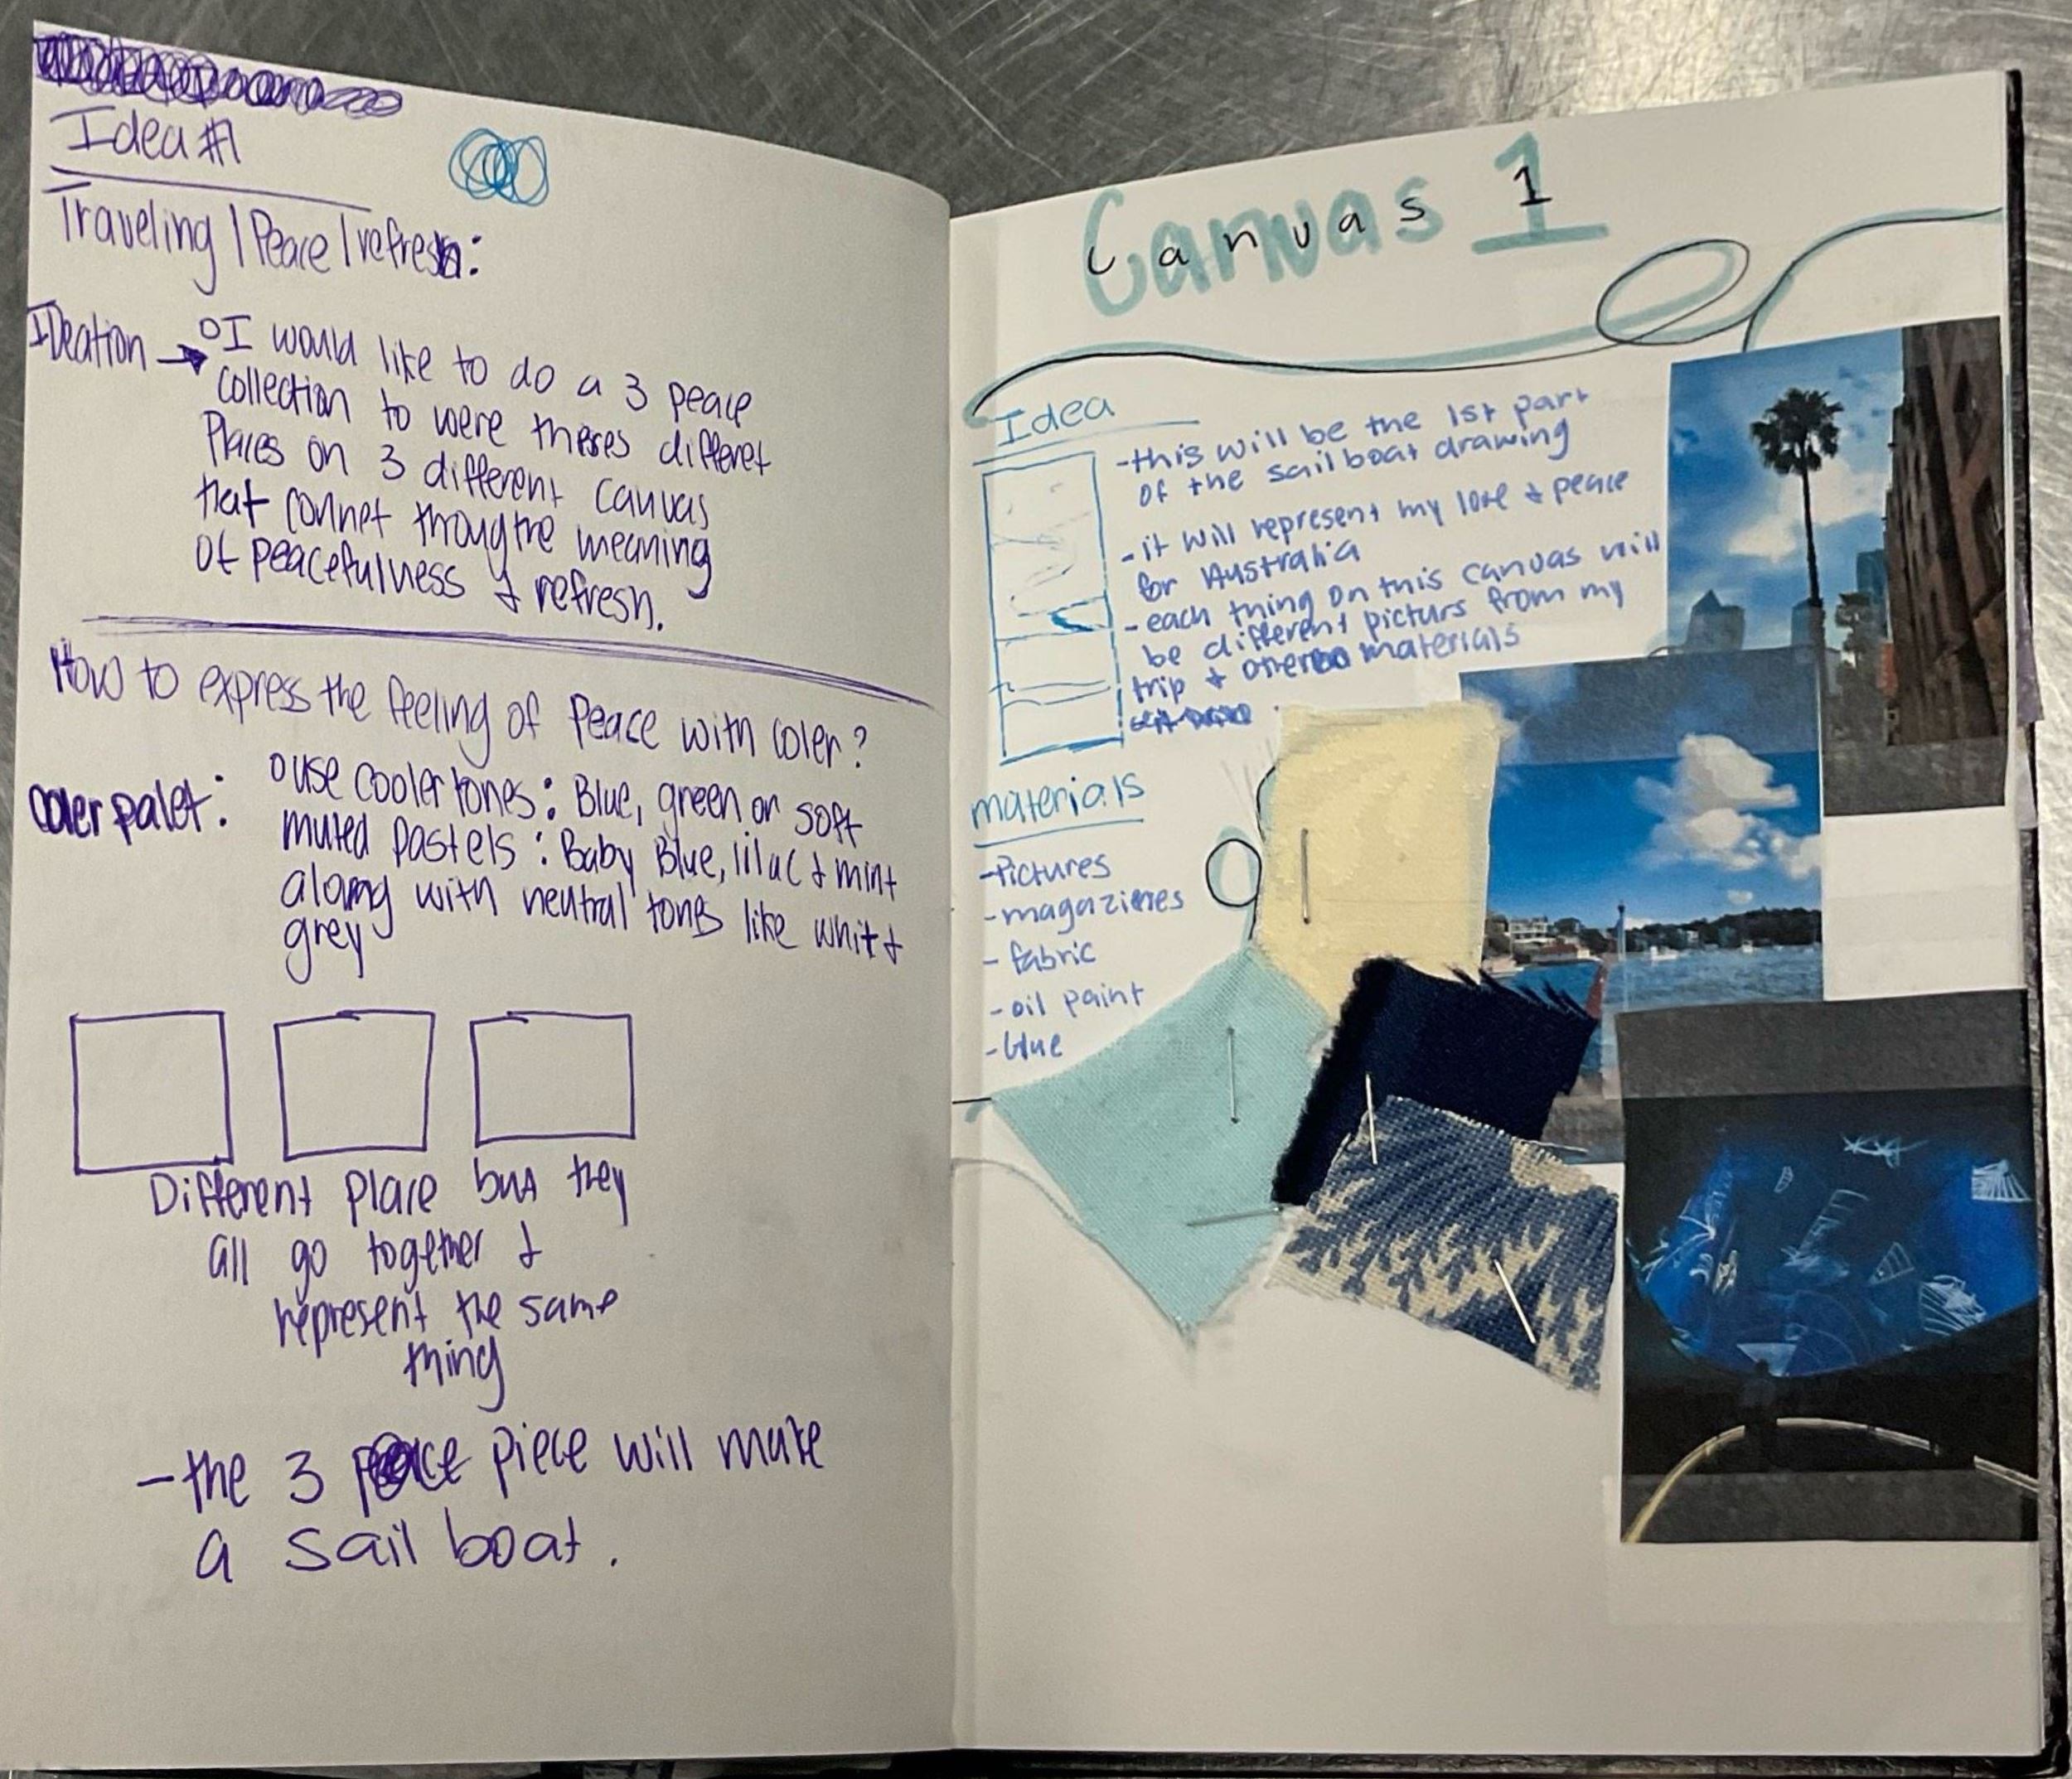 Idea #1
Traveling | Peace | refresh:
IDeation → o I would like to do a 3 peace
collection to were theres differet
Places on 3 different canvas
that connet throug the meaning
of peacefulness & refresh.
How to express the feeling of Peace with coler?
coler palet: o use cooler tones: Blue, green or soft
muted pastels: Baby Blue, lilac & mint
along with neutral tones like whit &
grey
Different place but they
all go together &
represent the same
thing
- the 3 piece will make
a sail boat.
Canvas 1
Canvas 1
Idea
- this will be the 1st part
of the sailboat drawing
- it will represent my love & peace
for Australia
- each thing on this canvas will
be different picturs from my
trip & other materials
materials
- Pictures
- magazienes
- fabric
- oil paint
- blue